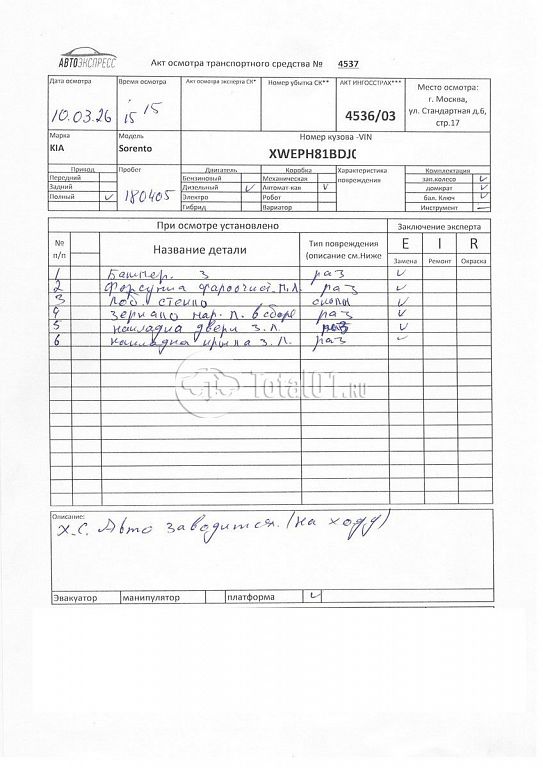 АВТОЭКСПРЕСС
Акт осмотра транспортного средства № 4537
Дата осмотра
10.03.26
Время осмотра
15 15
Акт осмотра эксперта СК*
Номер убытка СК**
АКТ ИНГОССТРАХ***
4536/03
Место осмотра:
г. Москва,
ул. Стандартная д.6,
стр.17
Марка
KIA
Модель
Sorento
Номер кузова -VIN
XWEPH81BDJ
Привод
Передний
Задний
Полный
Пробег
180405
Двигатель
Бензиновый
Дизельный
Электро
Гибрид
Коробка
Механическая
Автомат-кая
Робот
Вариатор
Характеристика
повреждения
Комплектация
зап.колесо
домкрат
бал. Ключ
Инструмент
При осмотре установлено
Заключение эксперта
№
п/п
Название детали
Тип повреждения
(описание см.Ниже
E I R
Замена Ремонт Окраска
1 Бампер. З раз
2 Форсунка фароочист. П.Л. раз
3 Лоб. стекло сколы
4 Зеркало нар. Л. в сборе раз
5 накладка двери З.Л. раз
6 накладка крыла З.Л. раз
Total01.RU
Описание:
Х.С. Авто заводится. (на ходу)
Эвакуатор манипулятор платформа